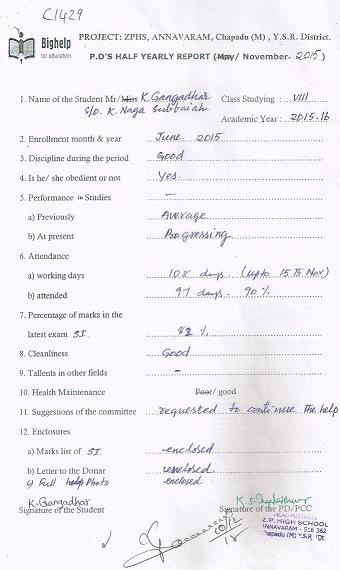 C1429
Bighelp
for education
PROJECT: ZPHS, ANNAVARAM, Chapadu (M) , Y.S.R. District.
P.D'S HALF YEARLY REPORT (May/ November- 2015)
1. Name of the Student Mr/Miss K. Gangadhar Class Studying : VIII
S/o. K. Naga Subbaiah Academic Year : 2015-16
2. Enrollment month & year June 2015
3. Discipline during the period Good
4. Is he/ she obedient or not Yes.
5. Performance in Studies —
a) Previously Average
b) At present Progressing
6. Attendance
a) working days 108 days (upto 15th Nov)
b) attended 97 days - 90%
7. Percentage of marks in the
latest exam SI. %
8. Cleanliness Good
9. Tallents in other fields –
10. Health Maintenance Poor/ good
11. Suggestions of the committee requested to continue the help
12. Enclosures
a) Marks list of SI enclosed
b) Letter to the Donar enclosed
c) Full Photo enclosed
K. Gangadhar
Signature of the Student Signature of the PD/PCC
HEAD MISTRESS
Z.P. HIGH SCHOOL
ANNAVARAM - 516 362
Chapadu (M) Y.S.R. Dt.